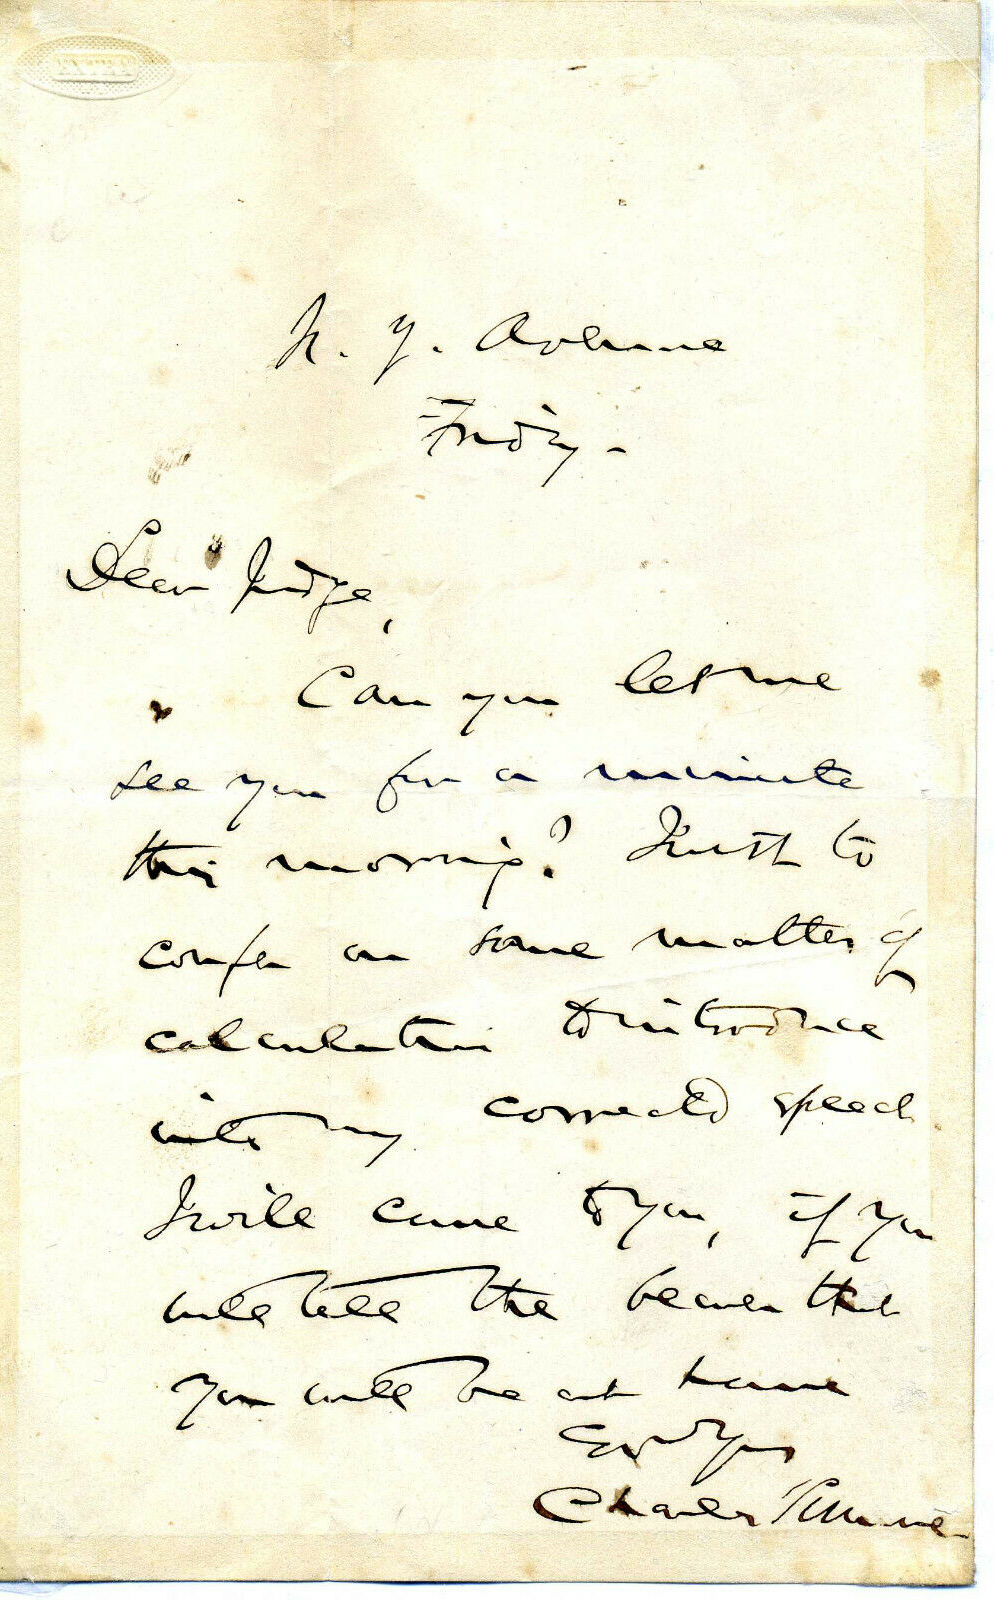 N. Y. Avenue
Friday -
Dear Judge,
Can you let me
see you for a minute
this morning? I wish to
confer on some matter of
calculation to introduce
into my corrected speech
I will come to you, if you
will tell the bearer that
you will be at home
Charles Sumner